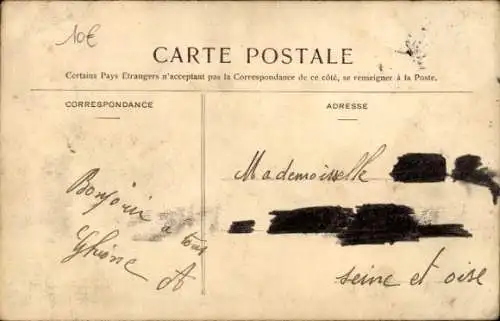 10€
CARTE POSTALE
Certains Pays Etrangers n'acceptant pas la Correspondance de ce côté, se renseigner à la Poste.
CORRESPONDANCE
Bonjour
à tous
ADRESSE
Mademoiselle
Seine et oise